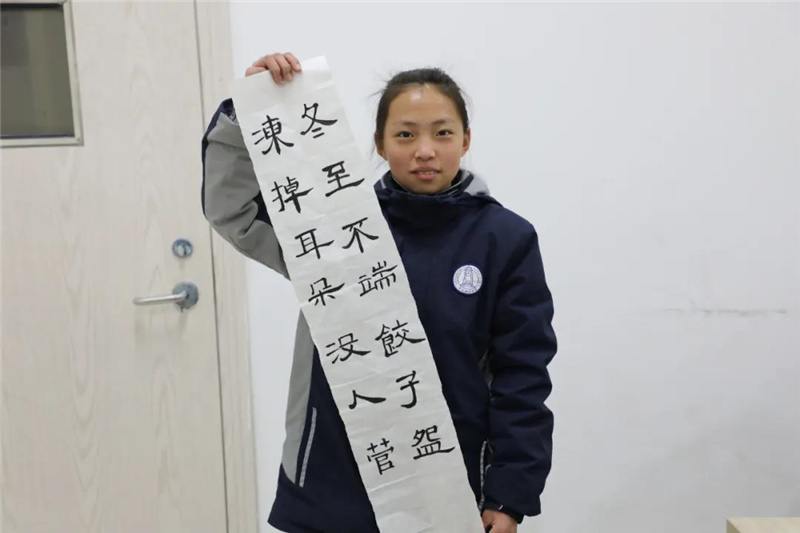 冬至不端餃子盌
凍掉耳朵没人菅